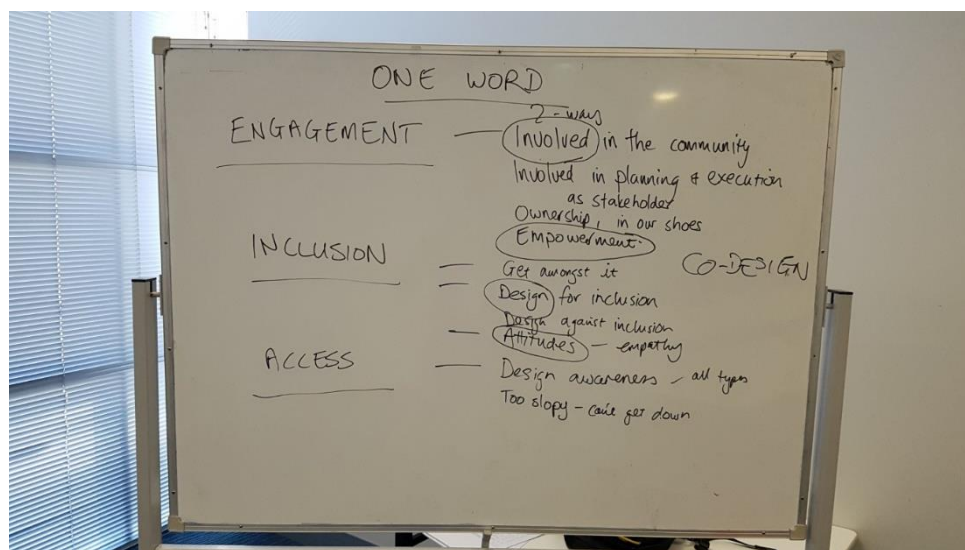 ONE WORD
2-ways
ENGAGEMENT — Involved in the community
Involved in planning & execution
as stakeholder
Ownership, in our shoes
Empowerment.
INCLUSION
CO-DESIGN
= Get amongst it
Design for inclusion
Design against inclusion
— Attitudes — empathy
ACCESS — Design awareness - all types
Too slopy - can't get down